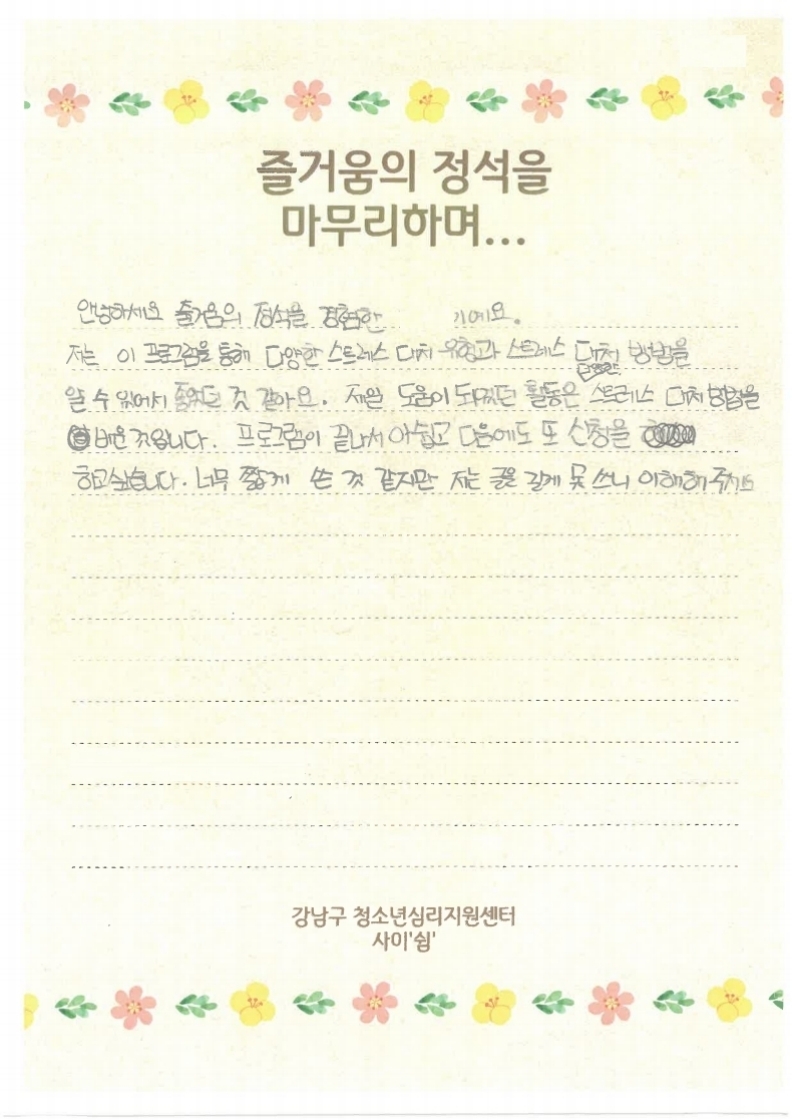 즐거움의 정석을
마무리하며...
안녕하세요 즐거움의 정석을 경험한 기예요.
저는 이 프로그램을 통해 다양한 스트레스 대처 유형과 스트레스 대처 방법을
알 수 있어서 좋았던 것 같아요. 제일 도움이 되었던 활동은 스트레스 대처 방법을
배운 것입니다. 프로그램이 끝나서 아쉽고 다음에도 또 신청을
하고싶습니다. 너무 짧게 쓴 것 같지만 저는 글을 길게 못 쓰니 이해해 주세요
강남구 청소년심리지원센터
사이'쉼'